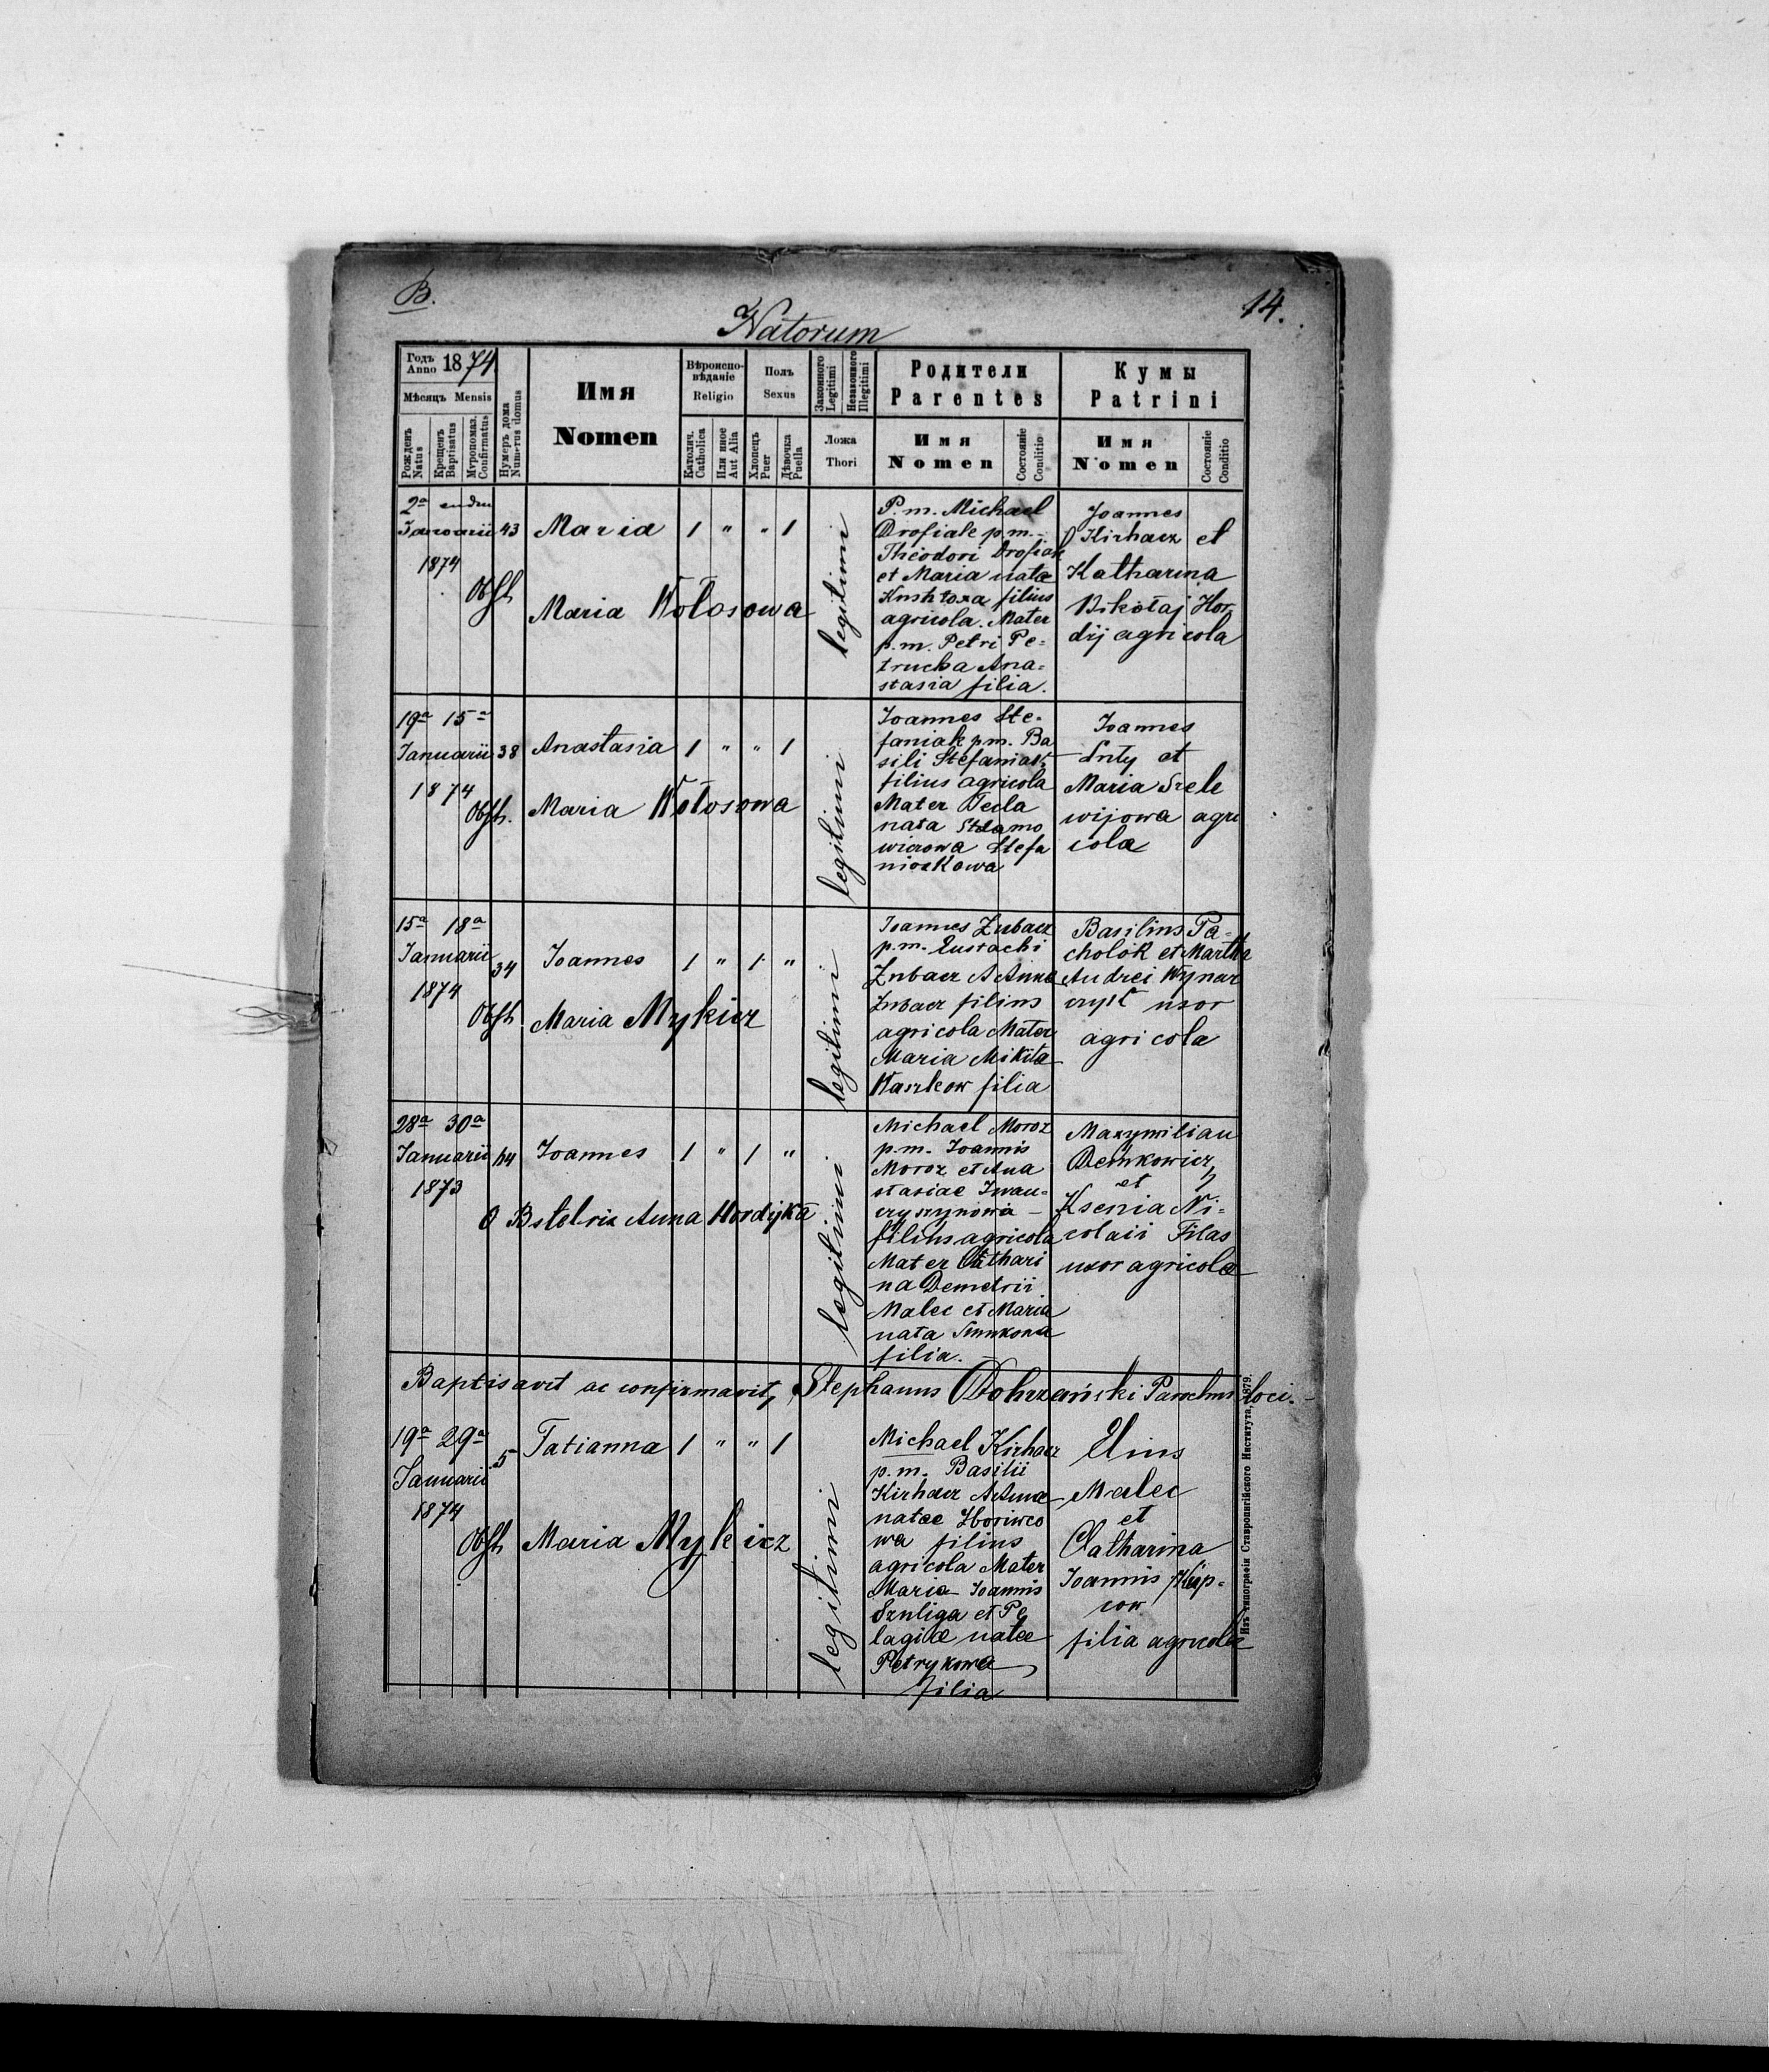 B.
14.
Natorum
Годъ Anno 1874
Мѣсяцъ Mensis
Рожденъ Natus
Крещенъ Baptisatus
Муропомаз. Confirmatus
Нумеръ дома Num-rus domus
Имя
Nomen
Вѣроисповѣданіе
Religio
Католич. Catholica
Или иное Aut Alia
Полъ
Sexus
Хлопецъ Puer
Дѣвочка Puella
Законного Legitimi
Незаконного Illegitimi
Ложа
Thori
Родители
Parentes
Имя
Nomen
Состояніе Conditio
Кумы
Patrini
Имя
Nomen
Состояніе Conditio
2a
Januarii 43 Maria 1 " " 1
1874
Obst. Maria Kołosowa
legitimi
P. m. Michael
Drofiak p. m.
Theodori Drofiak
et Maria nata
filius
agricola. Mater
p. m. Petri Pe=
trucha Ana=
stasia filia.
Joannes
Kirhacz et
Katharina
Hor
dij agricola
19a 15a
Januarii 38 Anastasia 1 " " 1
1874
Obst. Maria Kołosowa
legitimi
Joannes Ste=
faniak p. m. Ba
sili Stefaniak
filius agricola
Mater Tecla
nata
Stefa
niakowa
Joannes
et
Maria Szele
wijowa agri
cola
15a 18a
Januarii 34 Joannes 1 " 1 "
1874
Obst. Maria Mykicz
legitimi
Joannes Zubacz
p. m. Eustachi
Zubacz A Anna
Zubacz filius
agricola Mater
Maria Mikita
Waszkow filia
Basilius Pa=
cholok et Martha
Andrei
uxor
agricola
28a 30a
Januarii 44 Joannes 1 " 1 "
1873
Obstetrix Anna Hordijka
legitimi
Michael Moroz
p. m. Joannis
Moroz et Ana
stasiae Iwan=
czyszynowa
filius agricola
Mater Cathari
na Demetrii
Malec et Maria
nata
filia.
Maxymilian
Demkowicz
et
Ksenia Ni=
colaii Filas
uxor agricola
Baptisavit ac confirmavit, Stephanus Dobrzański Parochus loci.
19a 29a
Januarii 5 Tatianna 1 " " 1
1874
Obst. Maria Mykicz
legitimi
Michael Kirhacz
p. m. Basilii
Kirhacz A Anna
natae
wa filius
agricola Mater
Maria Joannis
Szuliga et Pe
lagiae natae
Petrykowa
filia
Elias
Malec
et
Catharina
Joannis Kup=
cow
filia agricolae
Изъ типографіи Ставропигійского Института, 1879.